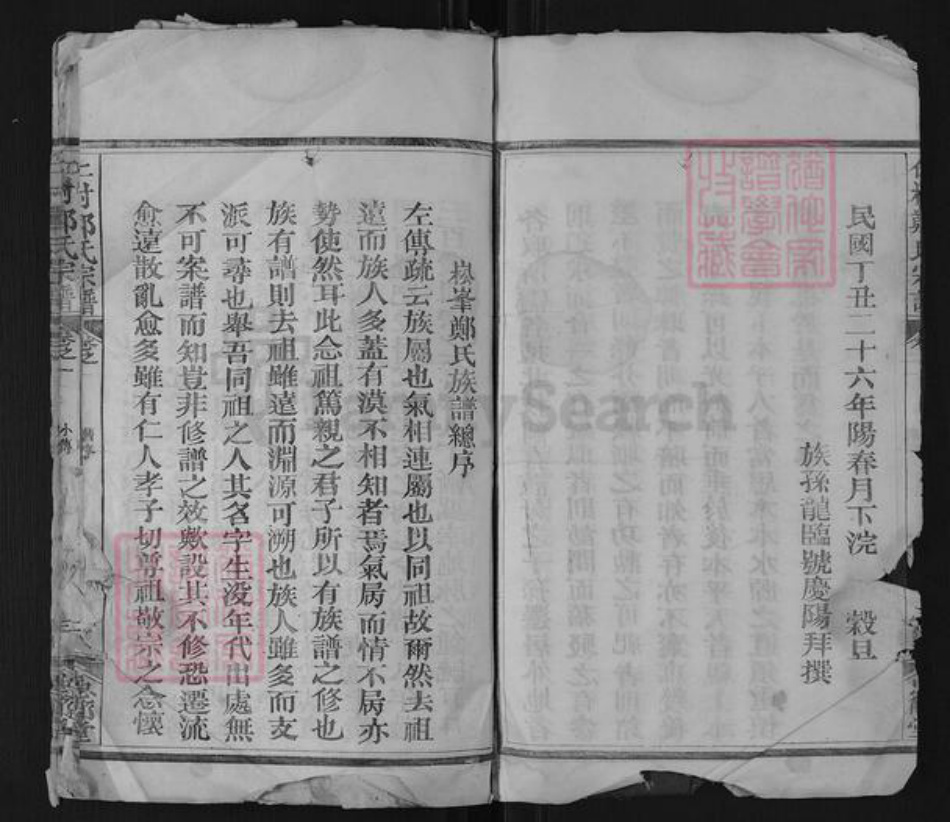 民國丁丑二十六年陽春月下浣 穀旦
族孫龍臨號慶陽拜撰
崧峯鄭氏族譜總序
左傳疏云族屬也氣相連屬也以同祖故爾然去祖
遠而族人多蓋有漠不相知者焉氣屬而情不屬亦
勢使然耳此念祖篤親之君子所以有族譜之修也
族有譜則去祖雖遠而淵源可溯也族人雖多而支
派可尋也舉吾同祖之人其名字生没年代出處無
不可案譜而知豈非修譜之效歟設其不修恐遷流
愈遠散亂愈多雖有仁人孝子切尊祖敬宗之念懷
鄭氏宗譜 卷之一
FamilySearch